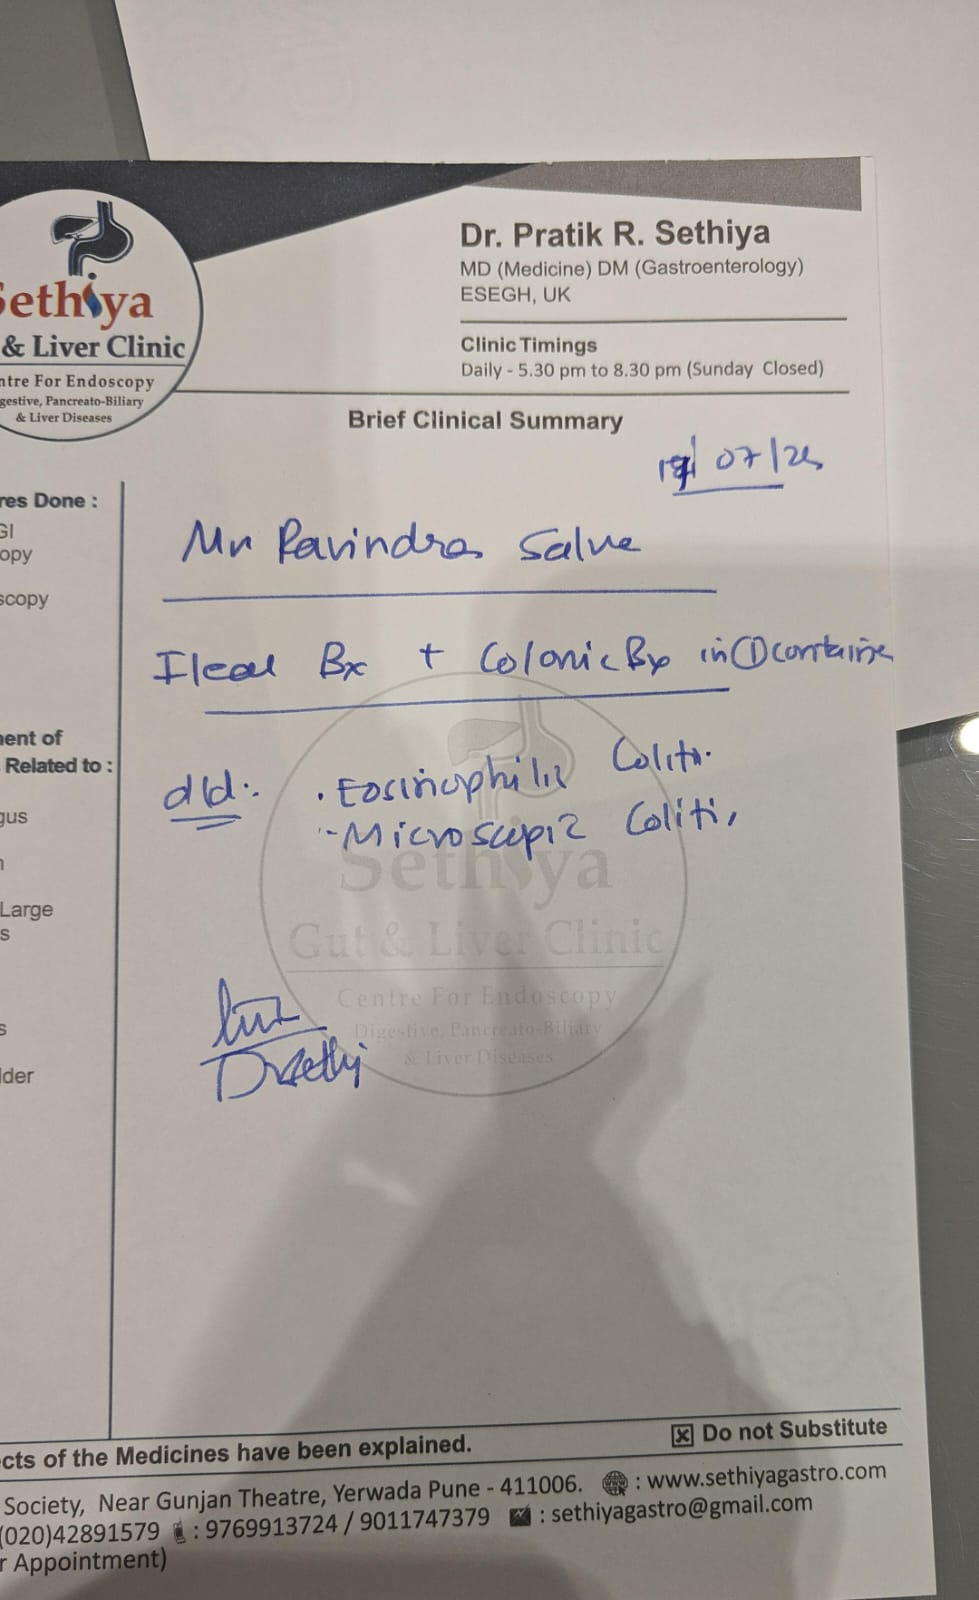 Dr. Pratik R. Sethiya
MD (Medicine) DM (Gastroenterology)
ESEGH, UK
Sethiya
& Liver Clinic
ntre For Endoscopy
gestive, Pancreato-Biliary
& Liver Diseases
Clinic Timings
Daily - 5.30 pm to 8.30 pm (Sunday Closed)
Brief Clinical Summary
07/25
res Done :
GI
opy
scopy
ment of
Related to :
gus
Large
s
s
lder
Mr Ravindra Salve
Ileal Bx + Colonic Bx in ① container
d/d:
. Eosinophilic Colitis
- Microscopic Colitis
Sethiya
Gut & Liver Clinic
Centre For Endoscopy
Digestive, Pancreato-Biliary
& Liver Diseases
Dr Sethi
cts of the Medicines have been explained.
Do not Substitute
Society, Near Gunjan Theatre, Yerwada Pune - 411006. : www.sethiyagastro.com
(020)42891579 : 9769913724 / 9011747379 : sethiyagastro@gmail.com
r Appointment)